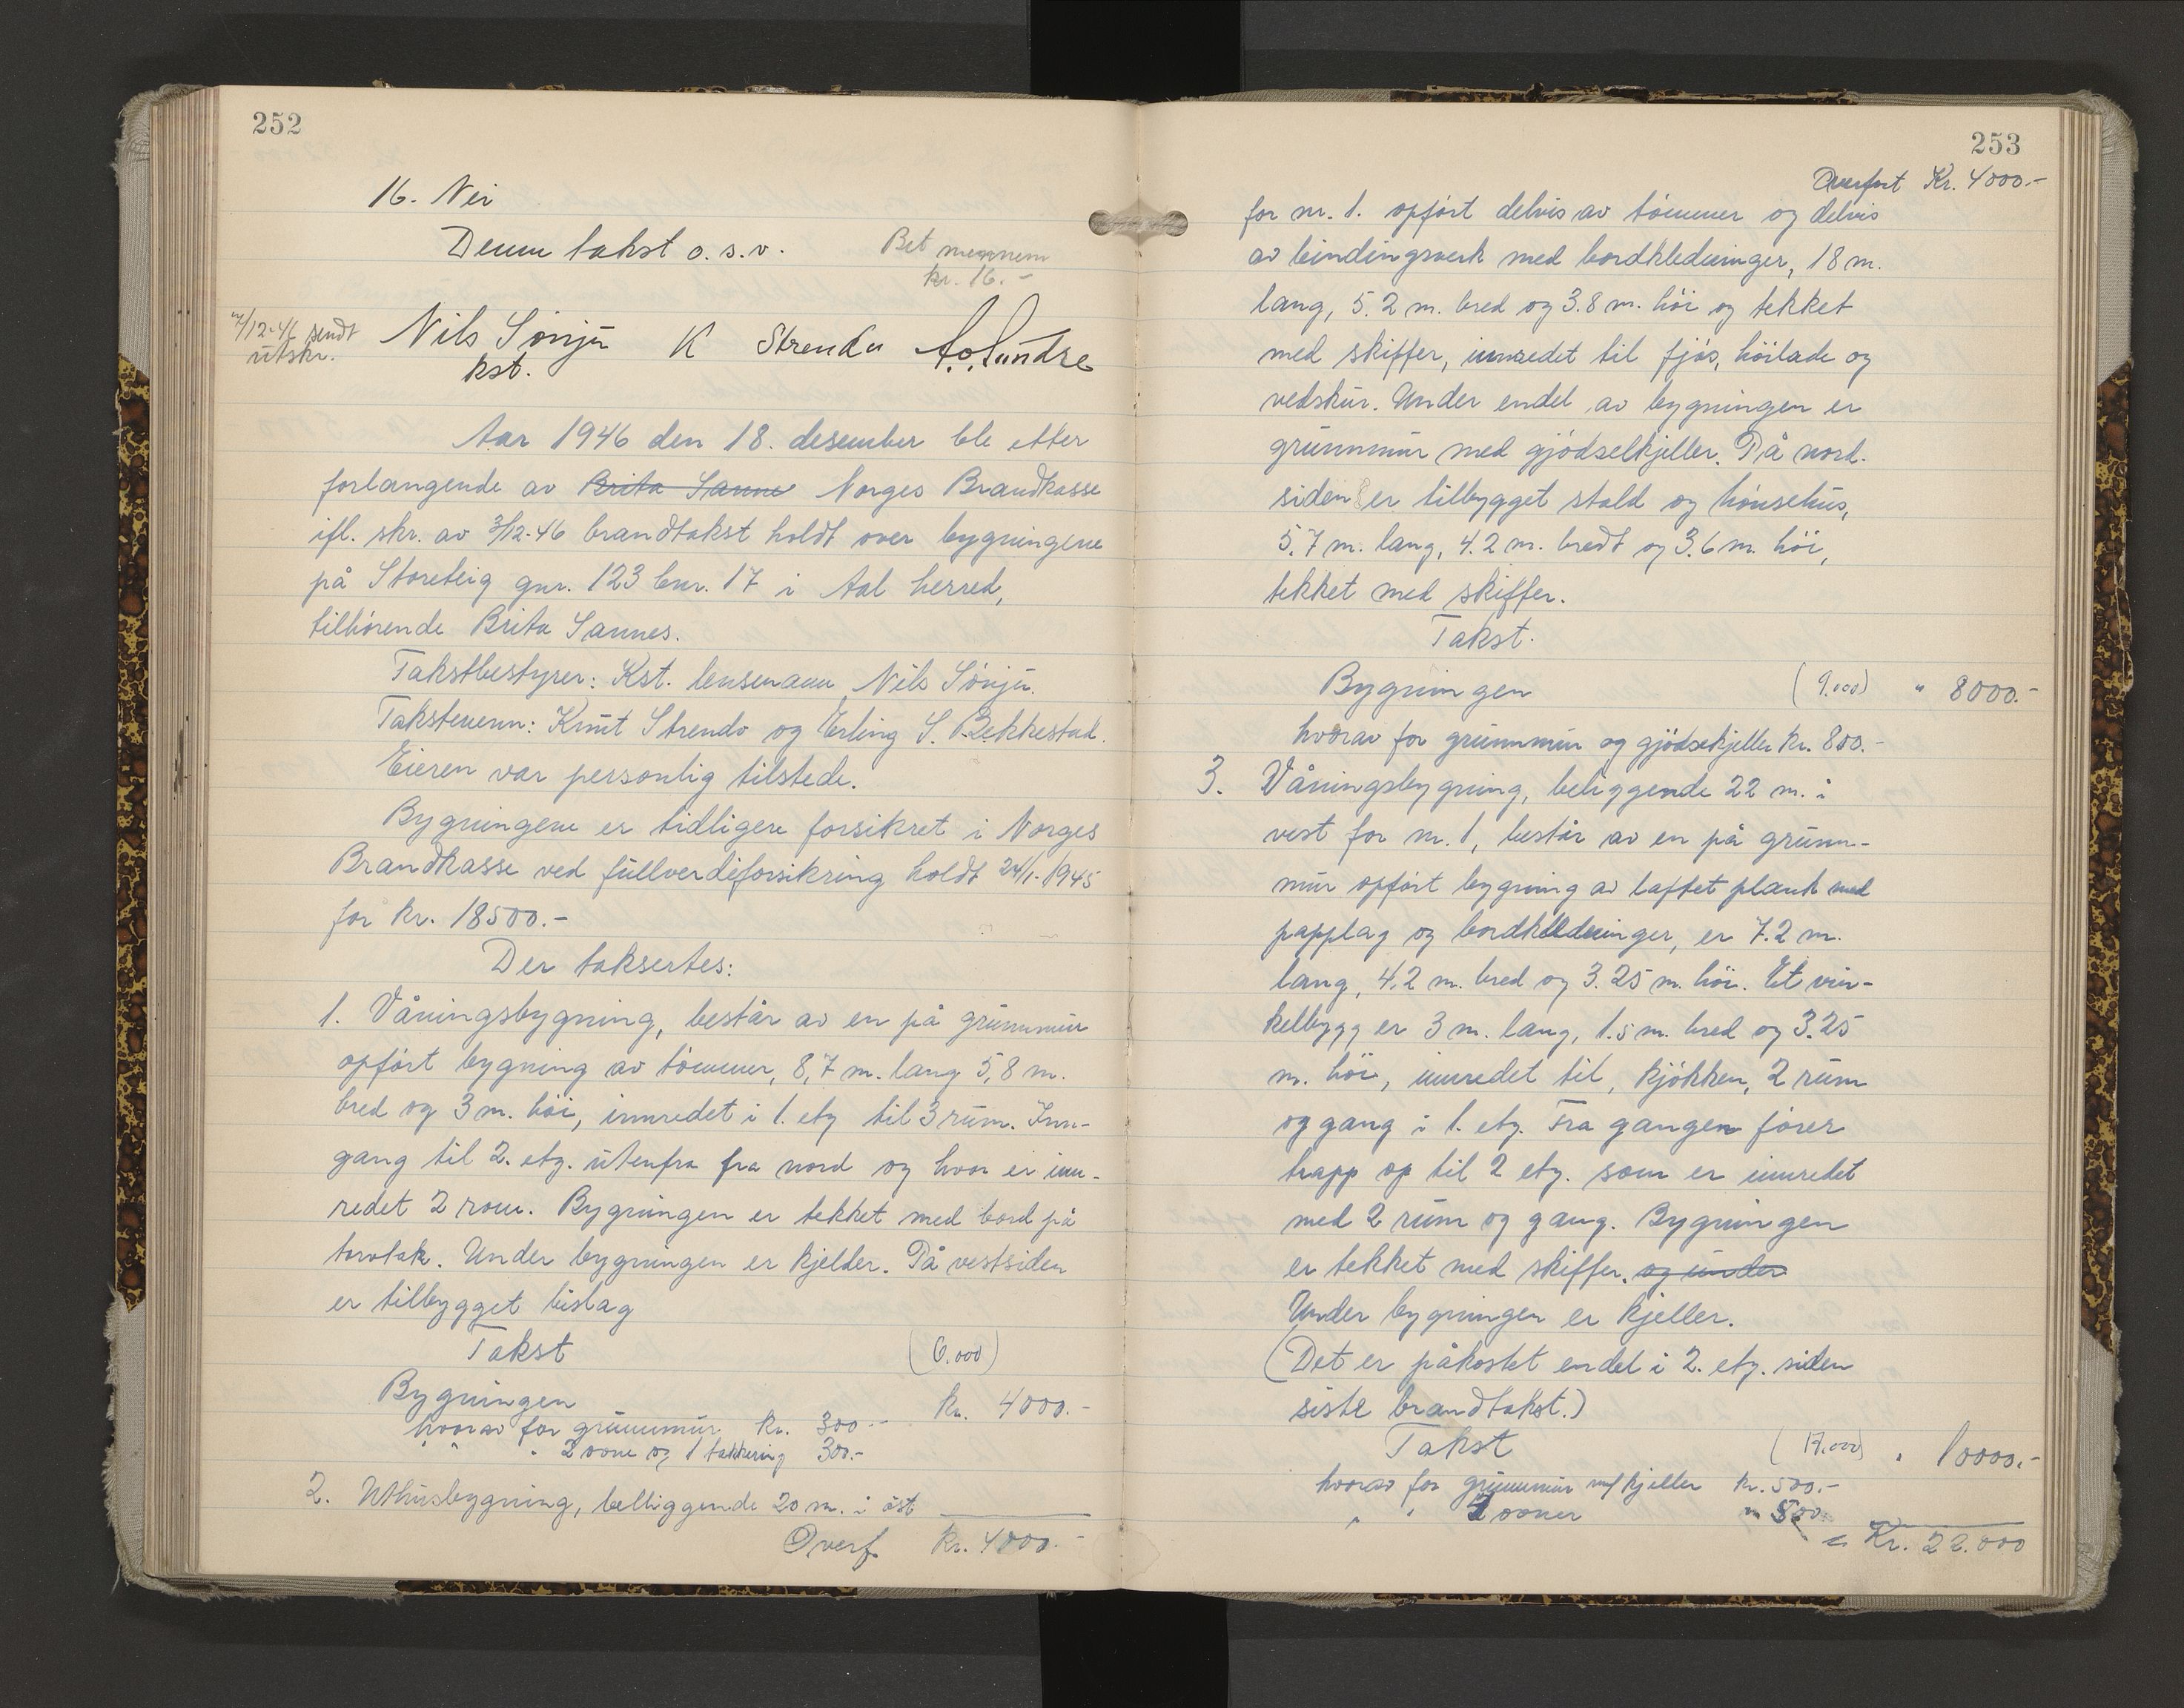 252
16. Nei
Denne takst o.s.v.
Bet mennene
kr. 16.-
/12-46 sendt
utskr.
Nils Sönju K Strendo A. O. Sundre
kst.
Aar 1946 den 18. desember ble etter
forlangende av Brita Sanne Norges Brandkasse
ifl. skr. av 3/12-46 brandtakst holdt over bygningene
på Storeteig gnr. 123 bnr. 17 i Aal herred,
tilhörende Brita Sannes.
Takstbestyrer: Kst. lensmann Nils Sönju.
Takstmenn: Knut Strendo og Erling S. Bekkestad.
Eieren var personlig tilstede.
Bygningene er tidligere forsikret i Norges
Brandkasse ved fullverdiforsikring holdt 24/1-1945
for kr. 18500.-
Der taksertes:
1. Våningsbygning, består av en på grunnmur
opfört bygning av tömmer, 8,7 m. lang 5,8 m.
bred og 3 m. höi, innredet i 1. etg til 3 rum. Inn-
gang til 2. etg. utenfra fra nord og hvor er inn-
redet 2 rom. Bygningen er tekket med bord på
torvtak. Under bygningen er kjelder. På vestsiden
er tilbygget bislag
Takst (6.000)
Bygningen kr. 4000.-
hvorav for grunnmur kr. 300.-
" " " 2 ovne og 1 takkering 300.-
2. Uthusbygning, belliggende 20 m. i öst
Overf. kr. 4000.-
253
Overfört Kr. 4000.-
for nr. 1. opfört delvis av tömmer og delvis
av bindingsverk med bordkledninger, 18 m.
lang, 5.2 m. bred og 3.8 m. höi og tekket
med skiffer, innredet til fjös, höilade og
vedskur. Under endel av bygningen er
grunnmur med gjödselkjeller. På nord-
siden er tilbygget stald og hönsehus,
5.7 m. lang, 4.2 m. bredt og 3.6 m. höi,
tekket med skiffer.
Takst.
Bygningen (9.000) " 8000.-
hvorav for grunnmur og gjödsekjeller kr. 800.-
3. Våningsbygning, beliggende 22 m. i
vest for nr. 1, består av en på grunn-
mur opfört bygning av laftet plank med
papplag og bordkledninger, er 7.2 m.
lang, 4.2 m. bred og 3.25 m. höi. Et vin-
kelbygg er 3 m. lang, 1.5 m. bred og 3.25
m. höi, innredet til, kjökken, 2 rum
og gang i 1. etg. Fra gangen förer
trapp op til 2 etg. som er innredet
med 2 rum og gang. Bygningen
er tekket med skiffer. og under
Under bygningen er kjeller.
(Det er påkostet endel i 2. etg. siden
siste brandtakst.)
Takst (17.000) " 10000.-
hvorav for grunnmur m/kjeller kr. 500.-
" " 2 ovner " 500.-
= Kr. 22.000